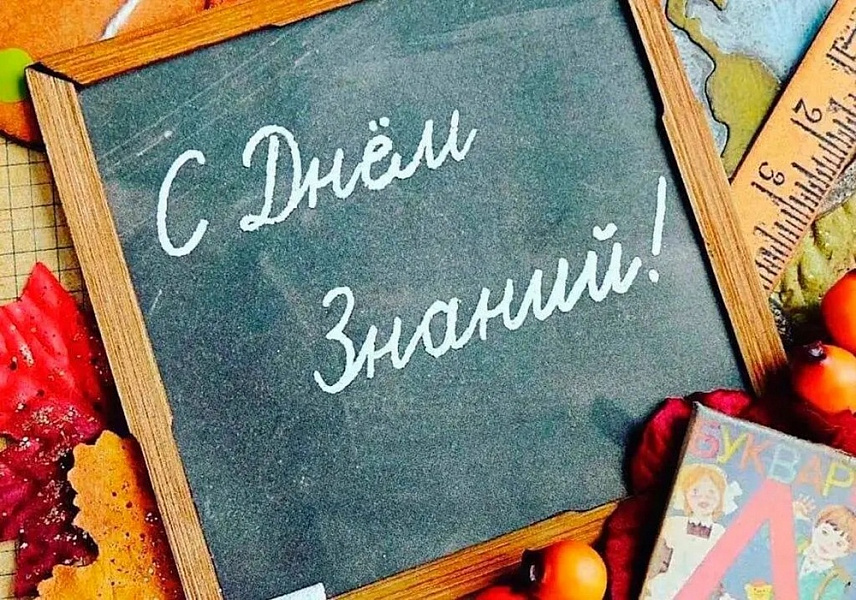 С Днём
Знаний!
2
3
БУКВАРЬ
А